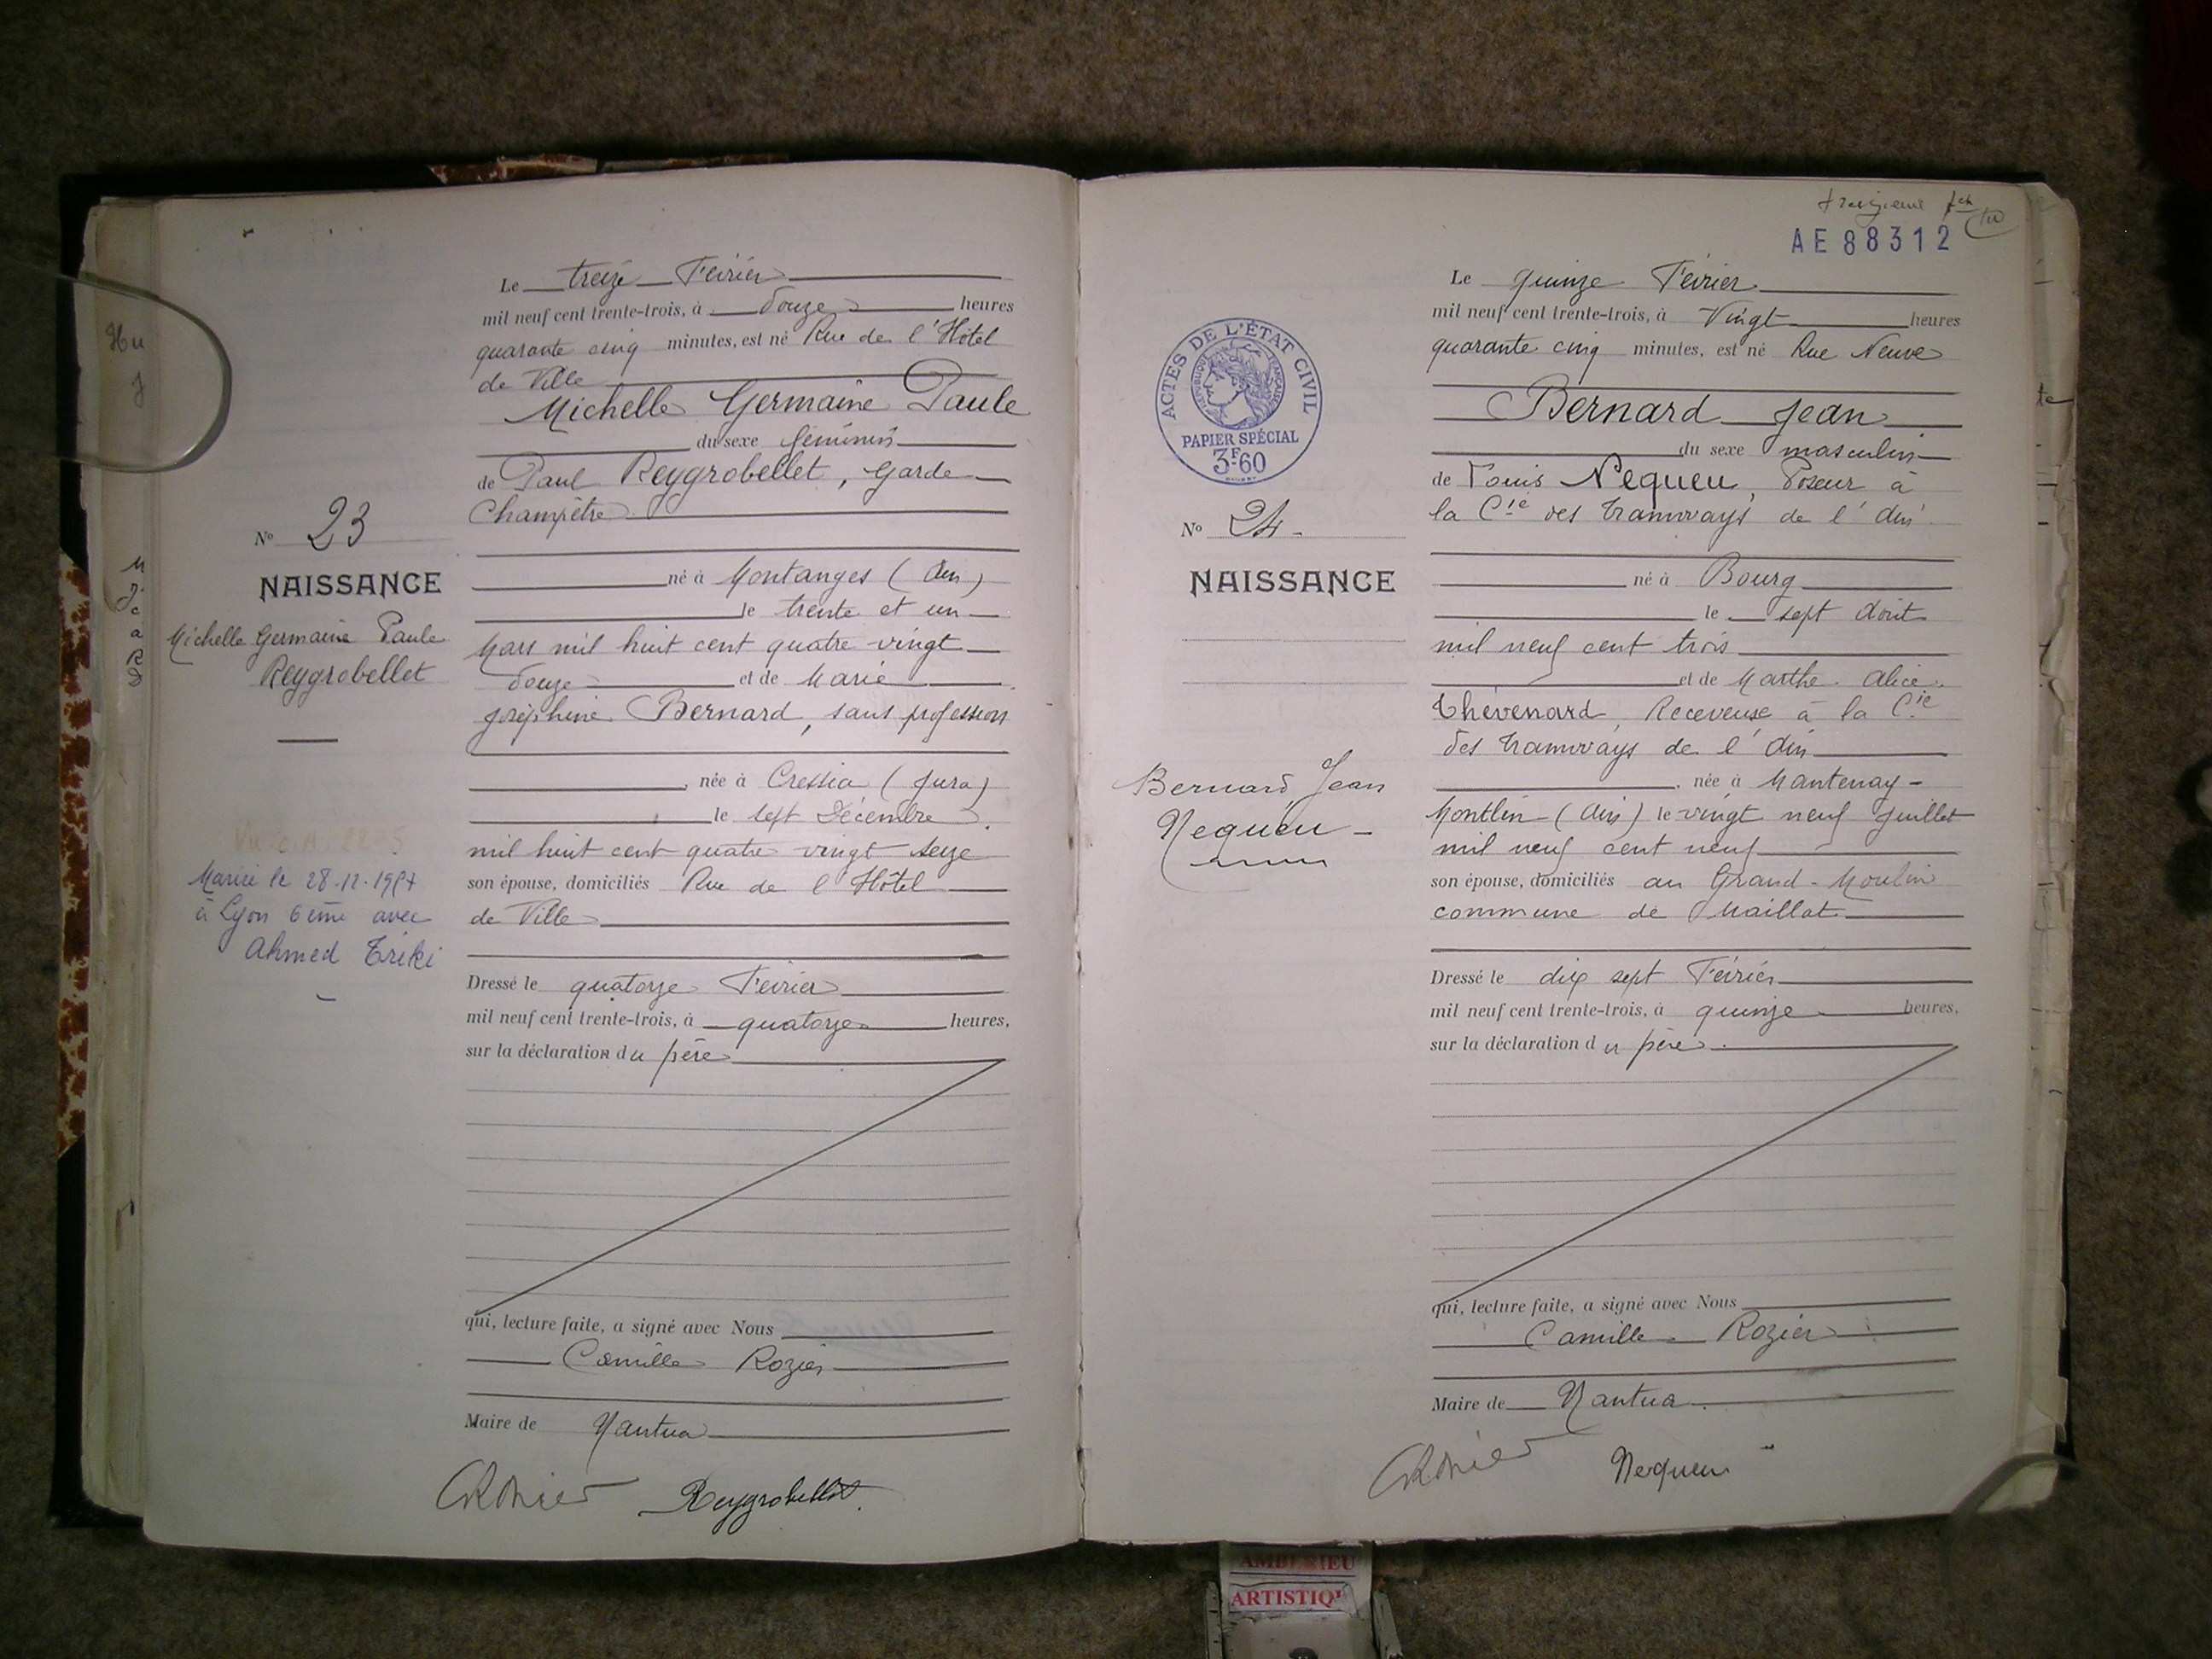 Le treize Février
mil neuf cent trente-trois, à douze heures
quarante cinq minutes, est né Rue de l'Hôtel
de Ville
Michelle Germaine Paule
du sexe féminin
de Paul Reygrobellet, Garde
Champêtre
né à Montanges (Ain)
le trente et un
Mars mil huit cent quatre vingt
douze et de Marie
Joséphine Bernard, sans profession
, née à Cressia (Jura)
le sept Décembre
mil huit cent quatre vingt seize
son épouse, domiciliés Rue de l'Hôtel
de Ville
Dressé le quatorze Février
mil neuf cent trente-trois, à quatorze heures,
sur la déclaration du père
qui, lecture faite, a signé avec Nous
Camille Rozier
Maire de Nantua
CRozier Reygrobellet
N° 23
NAISSANCE
Michelle Germaine Paule
Reygrobellet
Mariée le 28.12.1957
à Lyon 6ème avec
Ahmed Triki
AE 88312
ACTES DE L'ÉTAT CIVIL
RÉPUBLIQUE FRANÇAISE
PAPIER SPÉCIAL
3F60
N° 24
NAISSANCE
Bernard Jean
Nequeu
Le quinze Février
mil neuf cent trente-trois, à Vingt heures
quarante cinq minutes, est né Rue Neuve
Bernard Jean
du sexe masculin
de Louis Nequeu, Poseur à
la Cie des Tramways de l'Ain
né à Bourg
le sept Août
mil neuf cent trois
et de Marthe Alice
Thévenard, Receveuse à la Cie
des Tramways de l'Ain
, née à Mantenay-
Montlin (Ain) le vingt neuf Juillet
mil neuf cent neuf
son épouse, domiciliés au Grand-Moulin
commune de Maillat
Dressé le dix sept Février
mil neuf cent trente-trois, à quinze heures,
sur la déclaration du père
qui, lecture faite, a signé avec Nous
Camille Rozier
Maire de Nantua
CRozier Nequeu
AMBERIEU
ARTISTIQU